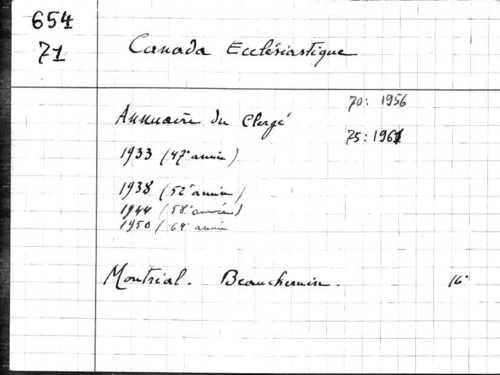 654
71
Canada Ecclésiastique
70: 1956
Annuaire du Clergé
75: 1961
1933 (47e année)
1938 (52e année)
1944 (58e année)
1950 (64e année
Montréal. Beauchemin. 16°